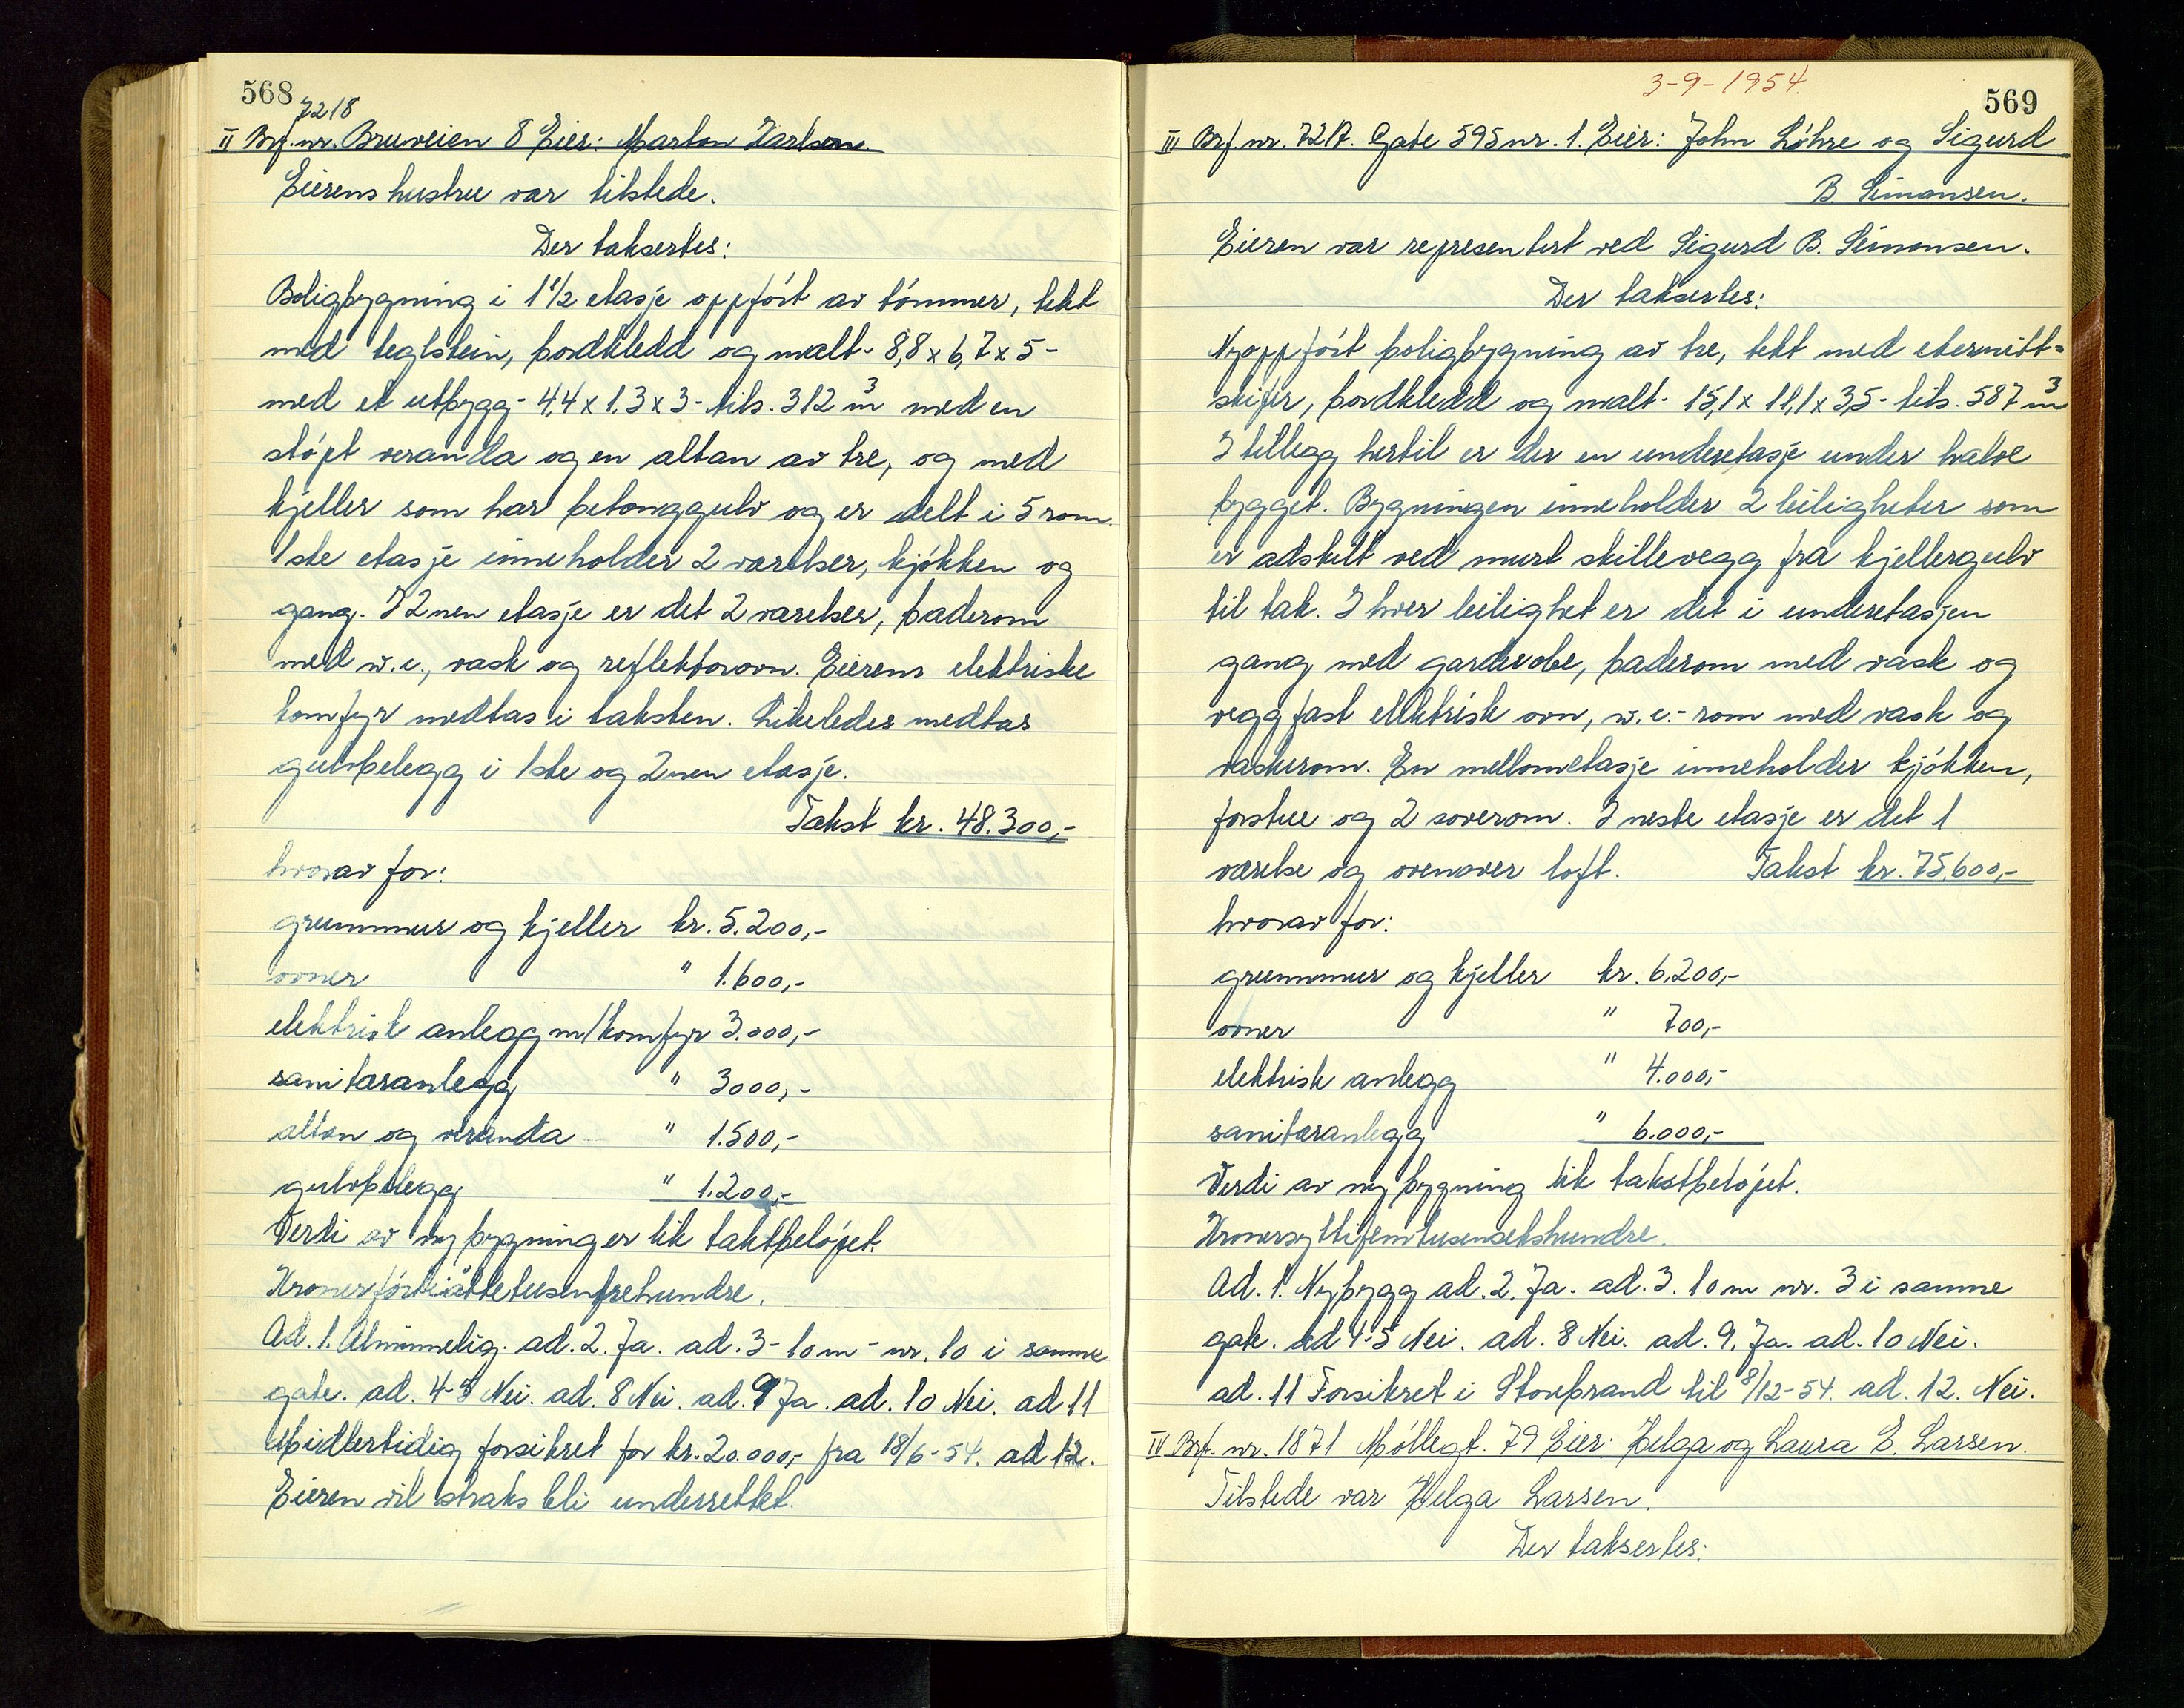 568
7218
II Brf. nr. Bruveien 8 Eier: Marton Karlsen.
Eierens hustru var tilstede.
Der taksertes:
Boligbygning i 1 1/2 etasje oppfört av tömmer, tekt
med teglstein, bordkledd og malt - 8,8 x 6,7 x 5 -
med et utbygg - 4,4 x 1,3 x 3 - tils. 312 m³ med en
stöpt veranda og en altan av tre, og med
kjeller som har betonggulv og er delt i 5 rom.
1ste etasje inneholder 2 værelser, kjökken og
gang. I 2nen etasje er det 2 værelser, baderom
med w.c., vask og reflektorovn. Eierens elektriske
komfyr medtas i taksten. Likeledes medtas
gulvbelegg i 1ste og 2nen etasje.
Takst kr. 48.300,-
hvorav for:
grunnmur og kjeller kr. 5.200,-
ovner " 1.600,-
elektrisk anlegg m/komfyr 3.000,-
sanitæranlegg " 3000,-
altan og veranda " 1.500,-
gulvbelegg " 1.200,-
Verdi av ny bygning er lik takstbelöpet.
Kronerförtiåttetusentrehundre.
Ad. 1. Alminnelig. ad. 2. Ja. ad. 3 - 10 m - nr. 10 i samme
gate. ad. 4-5 Nei. ad. 8 Nei. ad. 9 Ja. ad. 10 Nei. ad 11
Midlertidig forsikret for kr. 20.000,- fra 18/6-54. ad 12.
Eieren vil straks bli underrettet.
3-9-1954.
569
III Brf. nr. 7217. Gate 595 nr. 1. Eier: John Löhre og Sigurd
B. Simonsen.
Eieren var representert ved Sigurd B. Simonsen.
Der taksertes:
Nyoppfört boligbygning av tre, tekt med eternitt=
skifer, bordkledd og malt - 15,1 x 11,1 x 3,5 - tils. 587 m³
I tillegg hertil er der en underetasje under halve
bygget. Bygningen inneholder 2 leiligheter som
er adskilt ved murt skillevegg fra kjellergulv
til tak. I hver leilighet er det i underetasjen
gang med garderobe, baderom med vask og
veggfast elektrisk ovn, w.c.-rom med vask og
vaskerom. En mellometasje inneholder kjökken,
forstue og 2 soverom. I neste etasje er det 1
værelse og ovenover loft. Takst kr. 75.600,-
hvorav for:
grunnmur og kjeller kr. 6.200,-
ovner " 700,-
elektrisk anlegg " 4.000,-
sanitæranlegg " 6.000,-
Verdi av ny bygning lik takstbelöpet.
Kronersyttifemtusensekshundre.
Ad. 1. Nybygg ad. 2. Ja. ad. 3. 10 m nr. 3 i samme
gate. ad 4-5 Nei. ad. 8 Nei. ad. 9. Ja. ad. 10 Nei.
ad. 11 Forsikret i Storebrand til 8/12-54. ad. 12. Nei.
IV Brf. nr. 1871 Möllegt. 79 Eier: Helga og Laura E. Larsen.
Tilstede var Helga Larsen.
Der taksertes: